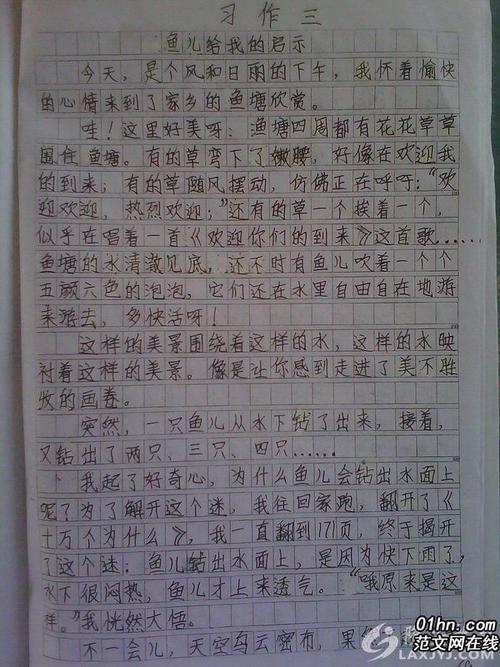 习作三
鱼儿给我的启示
今天，是个风和日丽的下午，我怀着愉快
的心情来到了家乡的鱼塘欣赏。
哇！这里好美呀：渔塘四周都有花花草草
围住鱼塘。有的草弯下了嫩腰，好像在欢迎我
的到来；有的草随风摆动，仿佛正在呼吁："欢
迎欢迎，热烈欢迎；"还有的草一个挨着一个，
似乎在唱着一首《欢迎你们的到来》这首歌……
鱼塘的水清澈见底，还不时有鱼儿吹着一个个
五颜六色的泡泡，它们还在水里自由自在地游
来游去，多快活呀！
这样的美景围绕着这样的水，这样的水映
衬着这样的美景。像是让你感到走进了美不胜
收的画卷。
突然，一只鱼儿从水下钻了出来，接着，
又钻出了两只、三只、四只……
我起了好奇心，为什么鱼儿会钻出水面上
呢？为了解开这个迷，我往回家跑，翻开了《
十万个为什么》，我一直翻到171页，终于揭开
了这个迷：鱼儿钻出水面上，是因为快下雨了，
水下很闷热，鱼儿才上来透气。"哦原来是这
样。"我恍然大悟。
不一会儿，天空乌云密布，果
01hn.com
范文网在线
LAXJYJ.COM